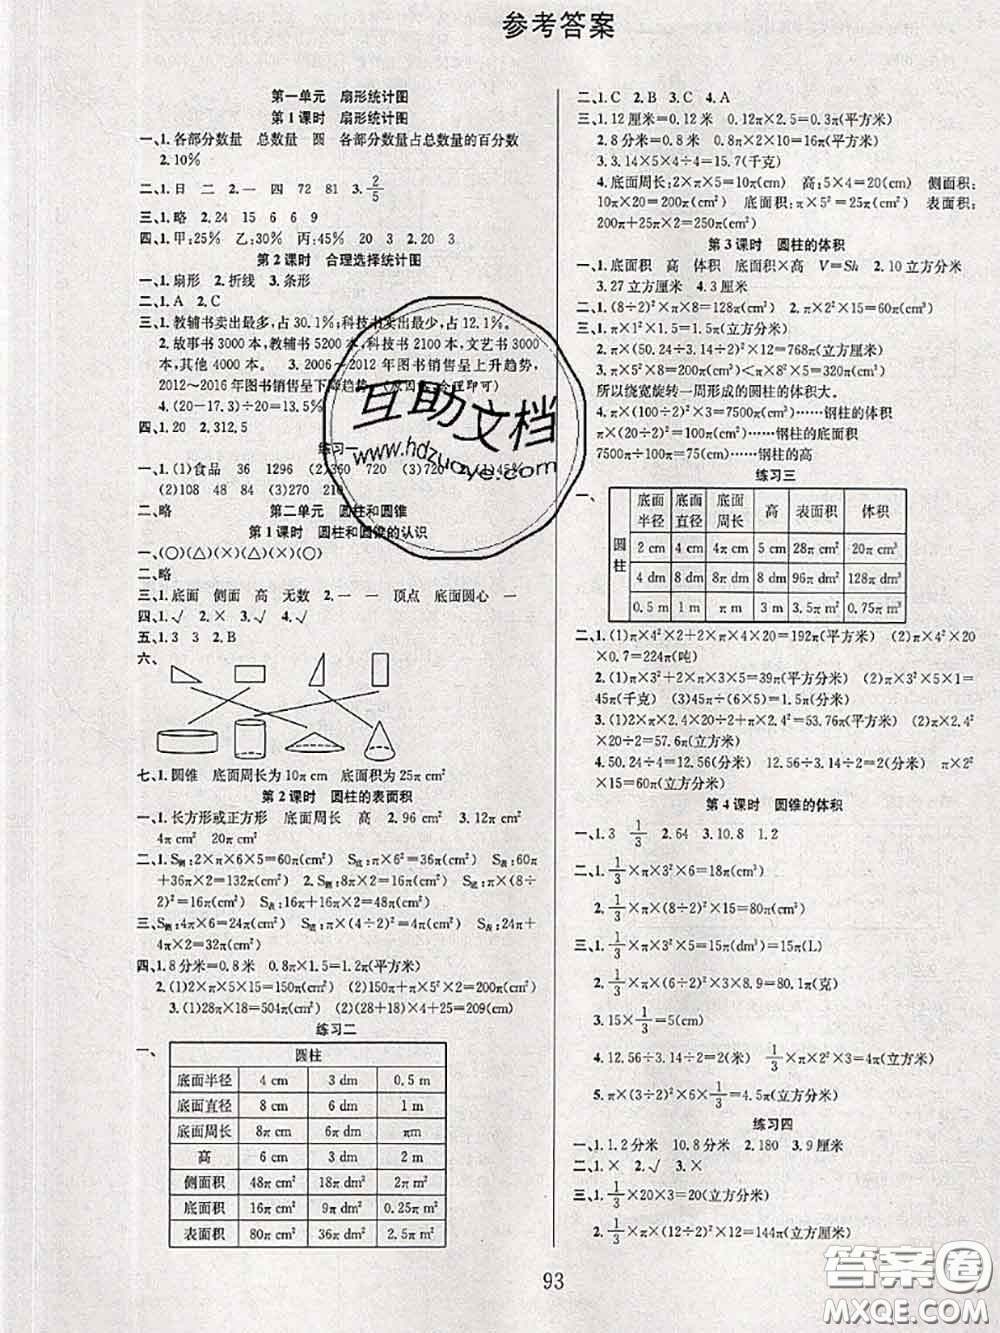 参考答案
第一单元　扇形统计图
第1课时　扇形统计图
一、1.各部分数量　总数量　圆　各部分数量占总数量的百分数
2.10%
二、1.日　二　2.一　四　72　81　3.2/5
三、1.略　2.24　15　6　6　9
四、1.甲:25%　乙:30%　丙:45%　20　3　2.20　3
第2课时　合理选择统计图
一、1.扇形　2.折线　3.条形
二、1.A　2.C
三、1.教辅书卖出最多,占30.1%;科技书卖出最少,占12.1%。
2.故事书3000本,教辅书5200本,科技书2100本,文艺书3000
本,其他4000本。　3.2006~2012年图书销售呈上升趋势,
2012~2016年图书销售呈下降趋势。(原因合理即可)
4.(20-17.3)÷20=13.5%
四、1.20　2.312.5
练习一
一、1.(1)食品　36　1296　(2)360　720　(3)720　2.(1)45%
(2)108　48　84　(3)270　210
二、略
第二单元　圆柱和圆锥
第1课时　圆柱和圆锥的认识
一、(○)(△)(×)(○)(△)(×)
二、略
三、1.底面　侧面　高　无数　2.一　一　顶点　底面圆心　一
四、1.√　2.×　3.√　4.√
五、1.3　3　2.B
六、
七、1.圆锥　底面周长为10π cm　底面积为25π cm²
第2课时　圆柱的表面积
一、1.长方形或正方形　底面周长　高　2.96 cm²　3.12π cm²
4π cm²　20π cm²
二、1.S侧:2×π×6×5=60π(cm²)　S底:π×6²=36π(cm²)　S表:60π
+36π×2=132π(cm²)　2.S侧:8π×2=16π(cm²)　S底:π×(8÷
2)²=16π(cm²)　S表:16π+16π×2=48π(cm²)
三、S侧:4π×6=24π(cm²)　S底:π×(4÷2)²=4π(cm²)　S表:24π+
4π×2=32π(cm²)
四、1.8分米=0.8米　0.8π×1.5=1.2π(平方米)
2.(1)2×π×5×15=150π(cm²)　(2)150π+π×5²×2=200π(cm²)
3.(1)28π×18=504π(cm²)　(2)(28+18)×4+25=209(cm)
练习二
一、
圆柱
底面半径　4 cm　3 dm　0.5 m
底面直径　8 cm　6 dm　1 m
底面周长　8π cm　6π dm　πm
高　6 cm　3 dm　2 m
侧面积　48π cm²　18π dm²　2π m²
底面积　16π cm²　9π dm²　0.25π m²
表面积　80π cm²　36π dm²　2.5π m²
二、1.C　2.B　3.C　4.A
三、1.12厘米=0.12米　0.12π×2.5=0.3π(平方米)
2.8分米=0.8米　0.8π×2×10=16π(平方米)
3.3.14×5×4÷4=15.7(千克)
4.底面周长:2×π×5=10π(cm)　高:5×4=20(cm)　侧面积:
10π×20=200π(cm²)　底面积:π×5²=25π(cm²)　表面积:
200π+25π×2=250π(cm²)
第3课时　圆柱的体积
一、1.底面积　高　体积　底面积×高　V=Sh　2.10立方分米
3.27立方厘米　4.3厘米
二、1.(8÷2)²×π×8=128π(cm³)　2.π×(4÷2)²×5=20π(cm³)
三、1.π×1²×1.5=1.5π(立方分米)
2.π×(50.24÷3.14÷2)²×12=768π(立方厘米)
3.π×5²×8=200π(cm³)<π×8²×5=320π(cm³)
所以绕宽旋转一周形成的圆柱的体积大。
4.π×(100÷2)²×3=7500π(cm³)……钢柱的体积
π×(20÷2)²=100π(cm²)……钢柱的底面积
7500π÷100π=75(cm)……钢柱的高
练习三
一、
圆柱　底面半径　底面直径　底面周长　高　表面积　体积
2 cm　4 cm　4π cm　5 cm　28π cm²　20π cm³
4 dm　8 dm　8π dm　8 dm　96π dm²　128π dm³
0.5 m　1 m　π m　3 m　3.5π m²　0.75π m³
二、1.(1)π×4²×2+2×π×4×20=192π(平方米)　(2)π×4²×20
×0.7=224π(吨)
2.(1)π×3²+2×π×3×5=39π(平方分米)　(2)π×3²×5×1=
45π(千克)　(3)45π÷(6×5)=1.5π(分米)
3.(1)2×π×2.4×20÷2+π×2.4²=53.76π(平方米)　(2)π×2.4²
×20÷2=57.6π(立方米)
4.50.24÷4=12.56(分米)　12.56÷3.14÷2=2(分米)　π×2²×
12.56=50.24π(立方分米)
第4课时　圆锥的体积
一、1.3　1/3　2.64　3.10.8　1.2
二、1.1/3×π×3²×6=18π(cm³)
2.1/3×π×(8÷2)²×15=80π(cm³)
三、1.1/3×π×3²×5=15π(dm³)=15π(L)
2.1/3×π×(6÷2)²×3×8.9=80.1π(克)
3.15×1/3=5(cm)
4.12.56÷3.14÷2=2(米)　1/3×π×2²×3=4π(立方米)
5.π×(3÷2)²×6×1/3=4.5π(立方分米)
练习四
一、1.1.2分米　10.8分米　2.180　3.9厘米
二、1.×　2.√　3.×
三、1.1/3×20×3=20(立方分米)
2.1/3×π×(12÷2)²×12=144π(立方厘米)
93
互助文档
www.hdzuoye.com
答案圈
MXQE.COM